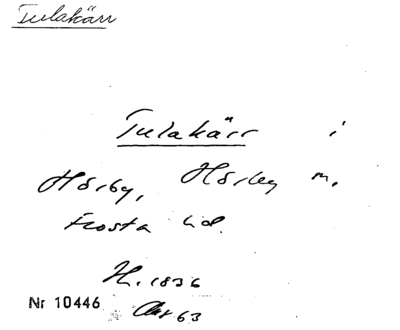 Tulakärr
Tulakärr i
Hörby, Hörby m.
Frosta hd.
H. 1836
Nr 10446
Akt 63